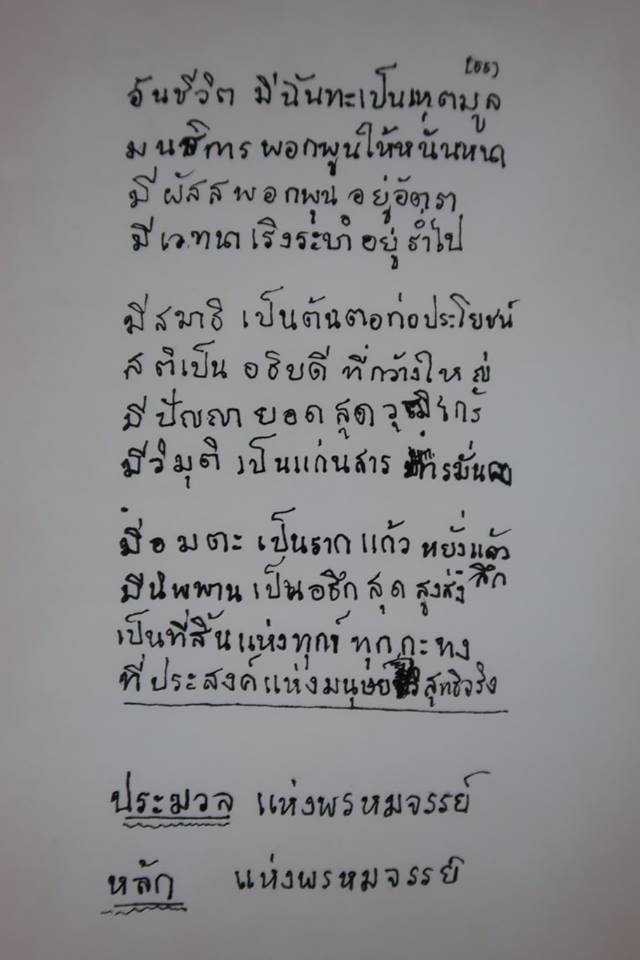 (๕๕)
อันชีวิต มีฉันทะเป็นเหตุมูล
มนสิการ พอกพูนให้หนั่นหนา
มีผัสสพอกพุน อยู่อัตรา
มีเวทนา เริงระบำ อยู่ร่ำไป
มีสมาธิ เป็นต้นตอก่อประโยชน์
สติเป็น อธิบดี ที่กว้างใหญ่
มีปัญญา ยอดสุด
มีวิมุติ เป็นแก่นสาร การมั่นคง
มีอมตะ เป็นรากแก้ว หยั่งแล้ว
มีนิพพาน เป็นอธึก สุด สูงส่ง
ลึก
เป็นที่สิ้นแห่งทุกข์ ทุกกะทง
ที่ประสงค์แห่งมนุษย์ สุทธิจริง
ประมวล แห่งพรหมจรรย์
หลัก แห่งพรหมจรรย์